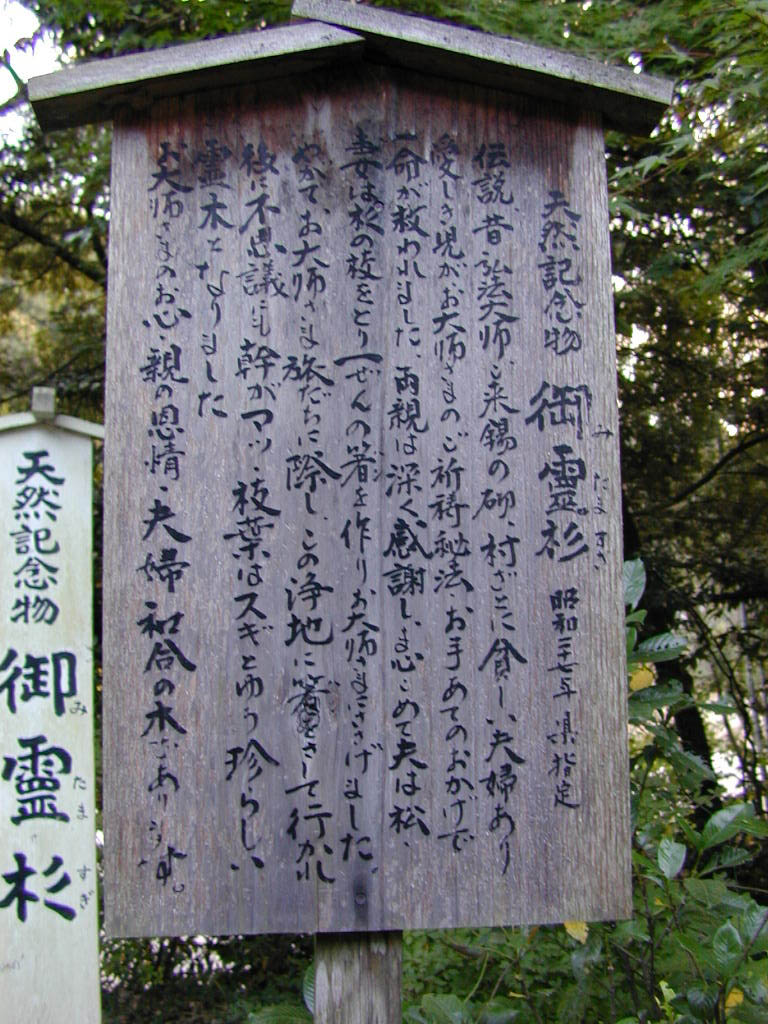 天然記念物 御霊杉 昭和二十七年 県指定
みたますぎ
伝説、昔 弘法大師ご来錫の砌、村ざとに貧しい夫婦あり
愛しき児がお大師さまのご祈祷秘法・お手あてのおかげで
一命が救われました、両親は深く感謝し、ま心こめて夫は松・
妻は杉の枝をとり一ぜんの箸を作りお大師さまにささげました。
やがて、お大師さま旅だちに際し、この浄地に箸をさして行かれ
後に不思議にも幹がマツ・枝葉はスギとゆう珍らしい
霊木となりました
お大師さまのお心・親の恩情・夫婦和合の木であります。
天然記念物 御霊杉
みたますぎ